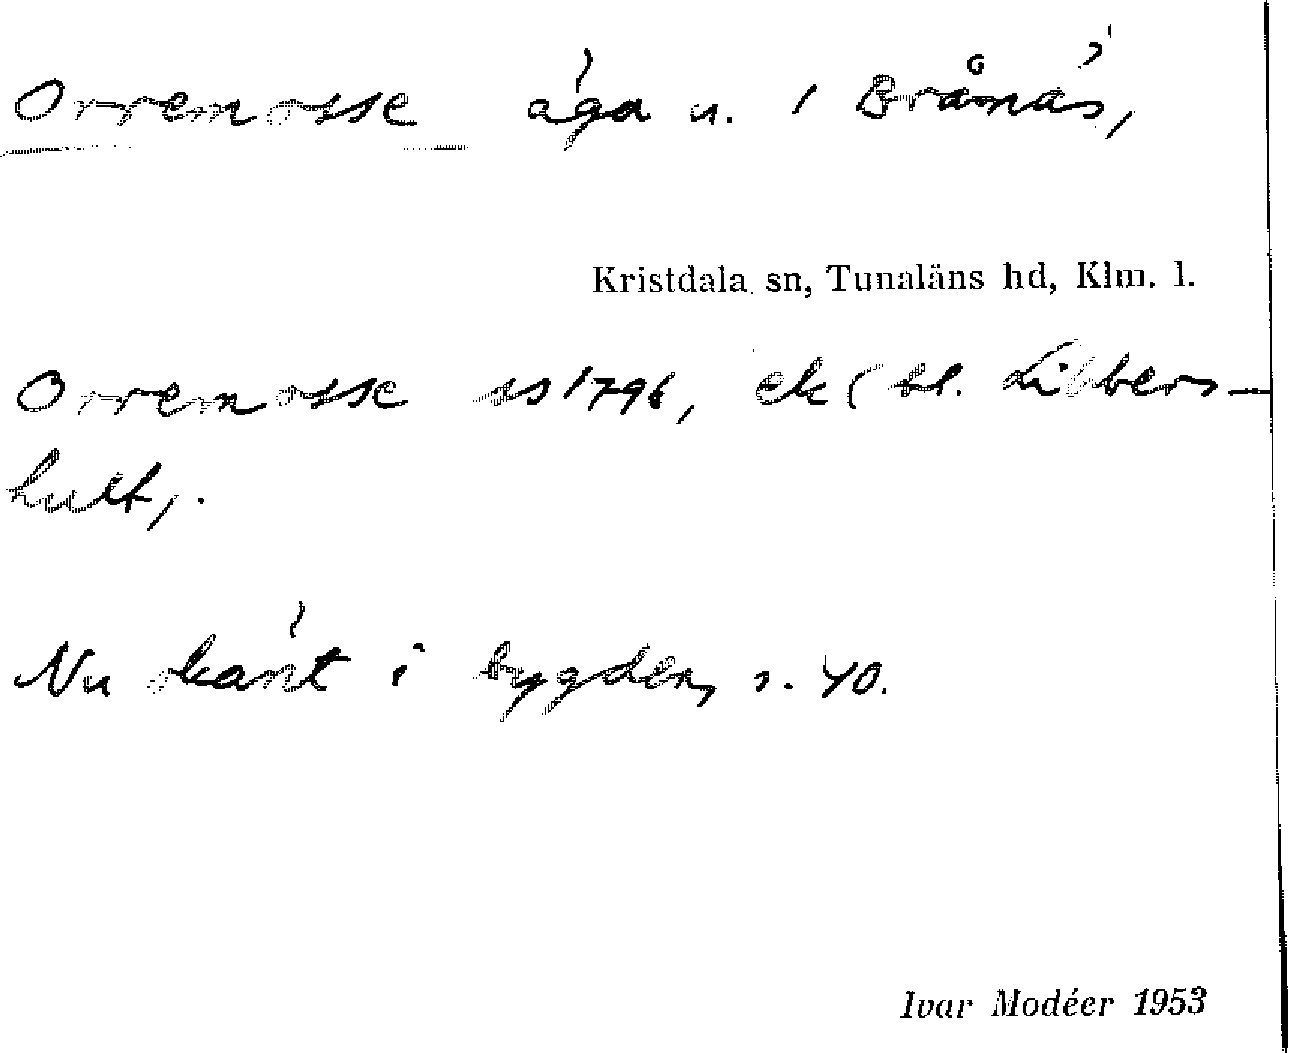 Orremosse äga u. i Bråmås,
Kristdala sn, Tunaläns hd, Klm. l.
Orremosse ss 1796, ek (bl. Libbers-
hult).
Nu okänt i bygden, s. 40.
Ivar Modéer 1953